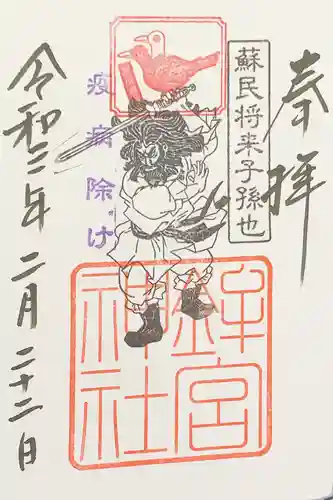 奉拝
蘇民将来子孫也
疫病除け
令和三年二月二十二日
鉾宮
神社